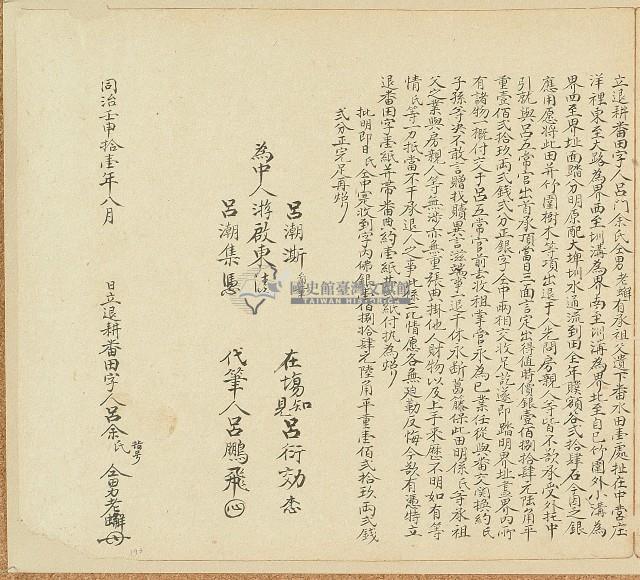 立退耕番田字人呂門余氏仝男老獬有承祖父遺下番水田壹處址在中壹庄
洋裡東至大路為界西至圳溝為界南至圳溝為界北至自己竹圍外小溝為
界四至界址面踏分明原配大埤圳水通流到田全年贌額谷弍拾肆石仝因乏銀
應用愿將此田并竹圍樹木等項出退于人先問房親人等皆不欲承受外托中
引就與呂五常官出首承頂當日三面言定出得值時價銀壹佰捌拾肆元陸角平
重壹佰弍拾玖兩弍錢弍分正銀字仝中兩相交收足訖遂即踏明界址盡界內所
有諸物一概付交于呂五常官前去收租掌管永為己業任從與番交関換約氏
子孫等決不敢言贈找贖異言滋端事一退千休永断葛藤保此田明係氏等承祖
父之業與房親人等無涉亦無重張典掛他人財物以及上手來歷不明如有等
情氏等一力抵當不干承退人之事此係二比情愿各無迫勒反悔今欲有憑特立
退番田字壹紙并帶番典約壹紙共弍紙付执為炤
批明即日氏仝中寔收到字內佛銀壹佰捌拾肆元陸角平重壹佰弍拾玖兩弍錢
弍分正完足再炤
呂潮澌
為中人游啟東
呂潮集憑
國史館臺灣文獻館
TAIWAN HISTORICA
在塲知見呂衍効
代筆人呂鵬飛
同治壬申拾壹年八月
日立退耕番田字人呂余氏指号仝男老獬
193